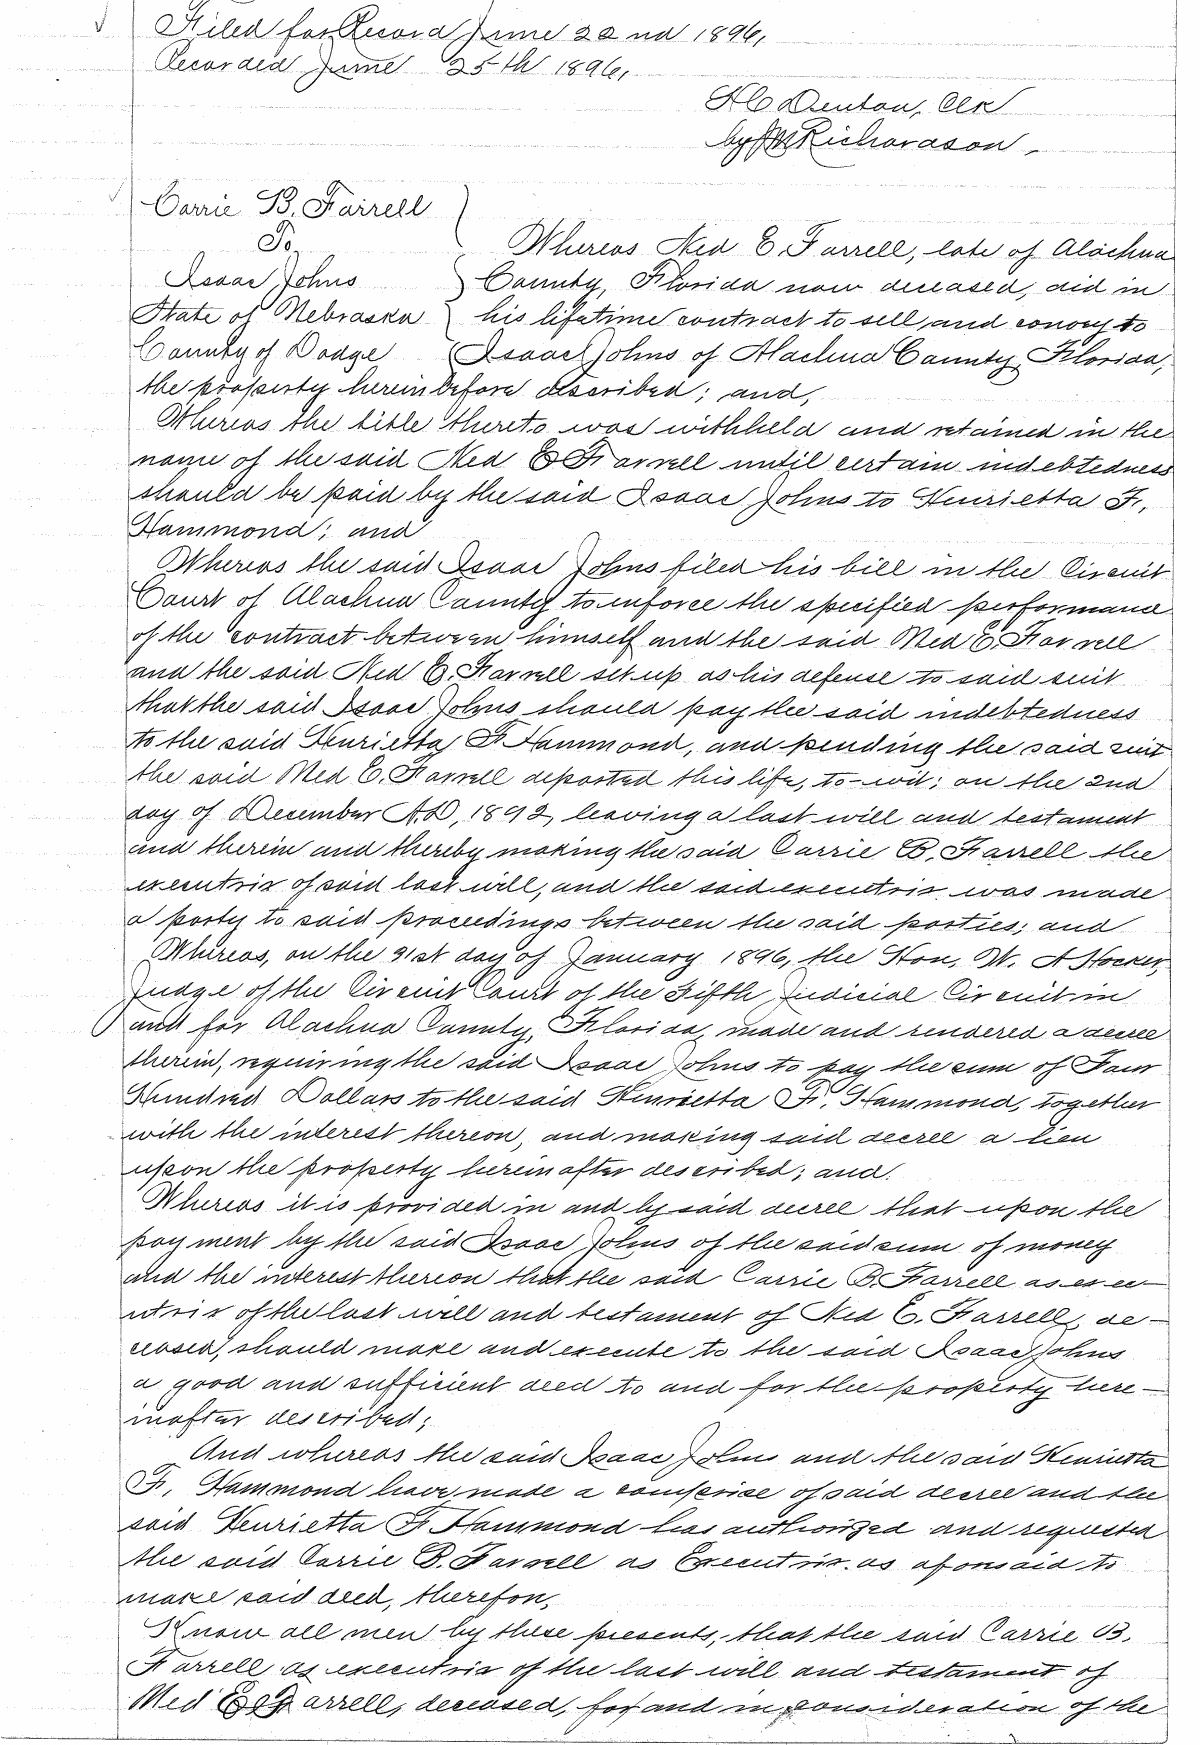 Filed for Record June 22nd 1896,
Recorded June 25th 1896,
H C Denton, Clk
by Richardson.
Carrie B. Farrell
To,
Whereas Ned E. Farrell, late of Alachua
Isaac Johns
County, Florida now deceased, did in
State of Nebraska
his lifetime contract to sell and convey to
County of Dodge
Isaac Johns of Alachua County, Florida,
the property hereinbefore described; and,
Whereas the title thereto was withheld and retained in the
name of the said Ned E Farrell until certain indebtedness
should be paid by the said Isaac Johns to Henrietta F.
Hammond; and
Whereas the said Isaac Johns filed his bill in the Circuit
Court of Alachua County to enforce the specified performance
of the contract between himself and the said Ned E. Farrell
and the said Ned E. Farrell set up as his defense to said suit
that the said Isaac Johns should pay the said indebtedness
to the said Henrietta F. Hammond, and pending the said suit
the said Ned E. Farrell departed this life, to-wit; on the 2nd
day of December A.D, 1892, leaving a last will and testament
and therein and thereby making the said Carrie B. Farrell the
executrix of said last will, and the said executrix was made
a party to said proceedings between the said parties; and
Whereas, on the 31st day of January 1896, the Hon. W. A Hocker,
Judge of the Circuit Court of the Fifth Judicial Circuit in
and for Alachua County, Florida, made and rendered a decree
therein, requiring the said Isaac Johns to pay the sum of Four
Hundred Dollars to the said Henrietta F. Hammond, together
with the interest thereon, and making said decree a lien
upon the property hereinafter described; and.
Whereas it is provided in and by said decree that upon the
payment by the said Isaac Johns of the said sum of money
and the interest thereon that the said Carrie B. Farrell as exec-
utrix of the last will and testament of Ned E. Farrell, de-
ceased, should make and execute to the said Isaac Johns
a good and sufficient deed to and for the property here-
inafter described;
And whereas the said Isaac Johns and the said Henrietta
F. Hammond have made a comprise of said decree and the
said Henrietta F. Hammond has authorized and requested
the said Carrie B. Farrell as Executrix as aforesaid to
make said deed, therefor,
Know all men by these presents, that the said Carrie B.
Farrell as executrix of the last will and testament of
Ned E Farrell, deceased, for and in consideration of the